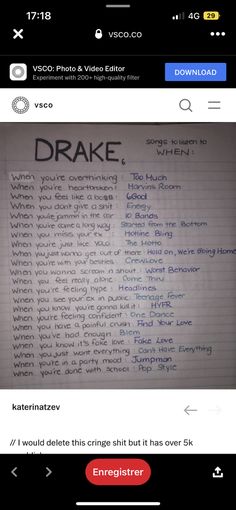 17:18
4G 29
vsco.co
VSCO: Photo & Video Editor
Experiment with 200+ high-quality filter
DOWNLOAD
VSCO
DRAKE
songs to listen to
WHEN:
When you're overthinking: Too Much
When you're heartbroken: Marvins Room
When you feel like a boss: 6 God
When you don't give a shit: Energy
When you're jammin in the car: 10 Bands
When you've come a long way: Started from the Bottom
When you miss your ex: Hotline Bling
When you're just like YOLO: The Motto
When you just wanna get out of there: Hold on, we're Going Home
When you're with your besties: Crew Love
When you wanna scream n shout: Worst Behavior
When you feel really alone: Come Thru
When you're feeling hype: Headlines
When you see your ex in public: Teenage Fever
When you know you're gonna kill it: HYFR
When you're feeling confident: One Dance
When you have a painful crush: Find Your Love
When you've had enough: Blem
When you know it's fake love: Fake Love
When you just want everything: Can't Have Everything
When you're in a party mood: Jumpman
When you're done with school: Pop Style
katerinatzev
// I would delete this cringe shit but it has over 5k
Enregistrer